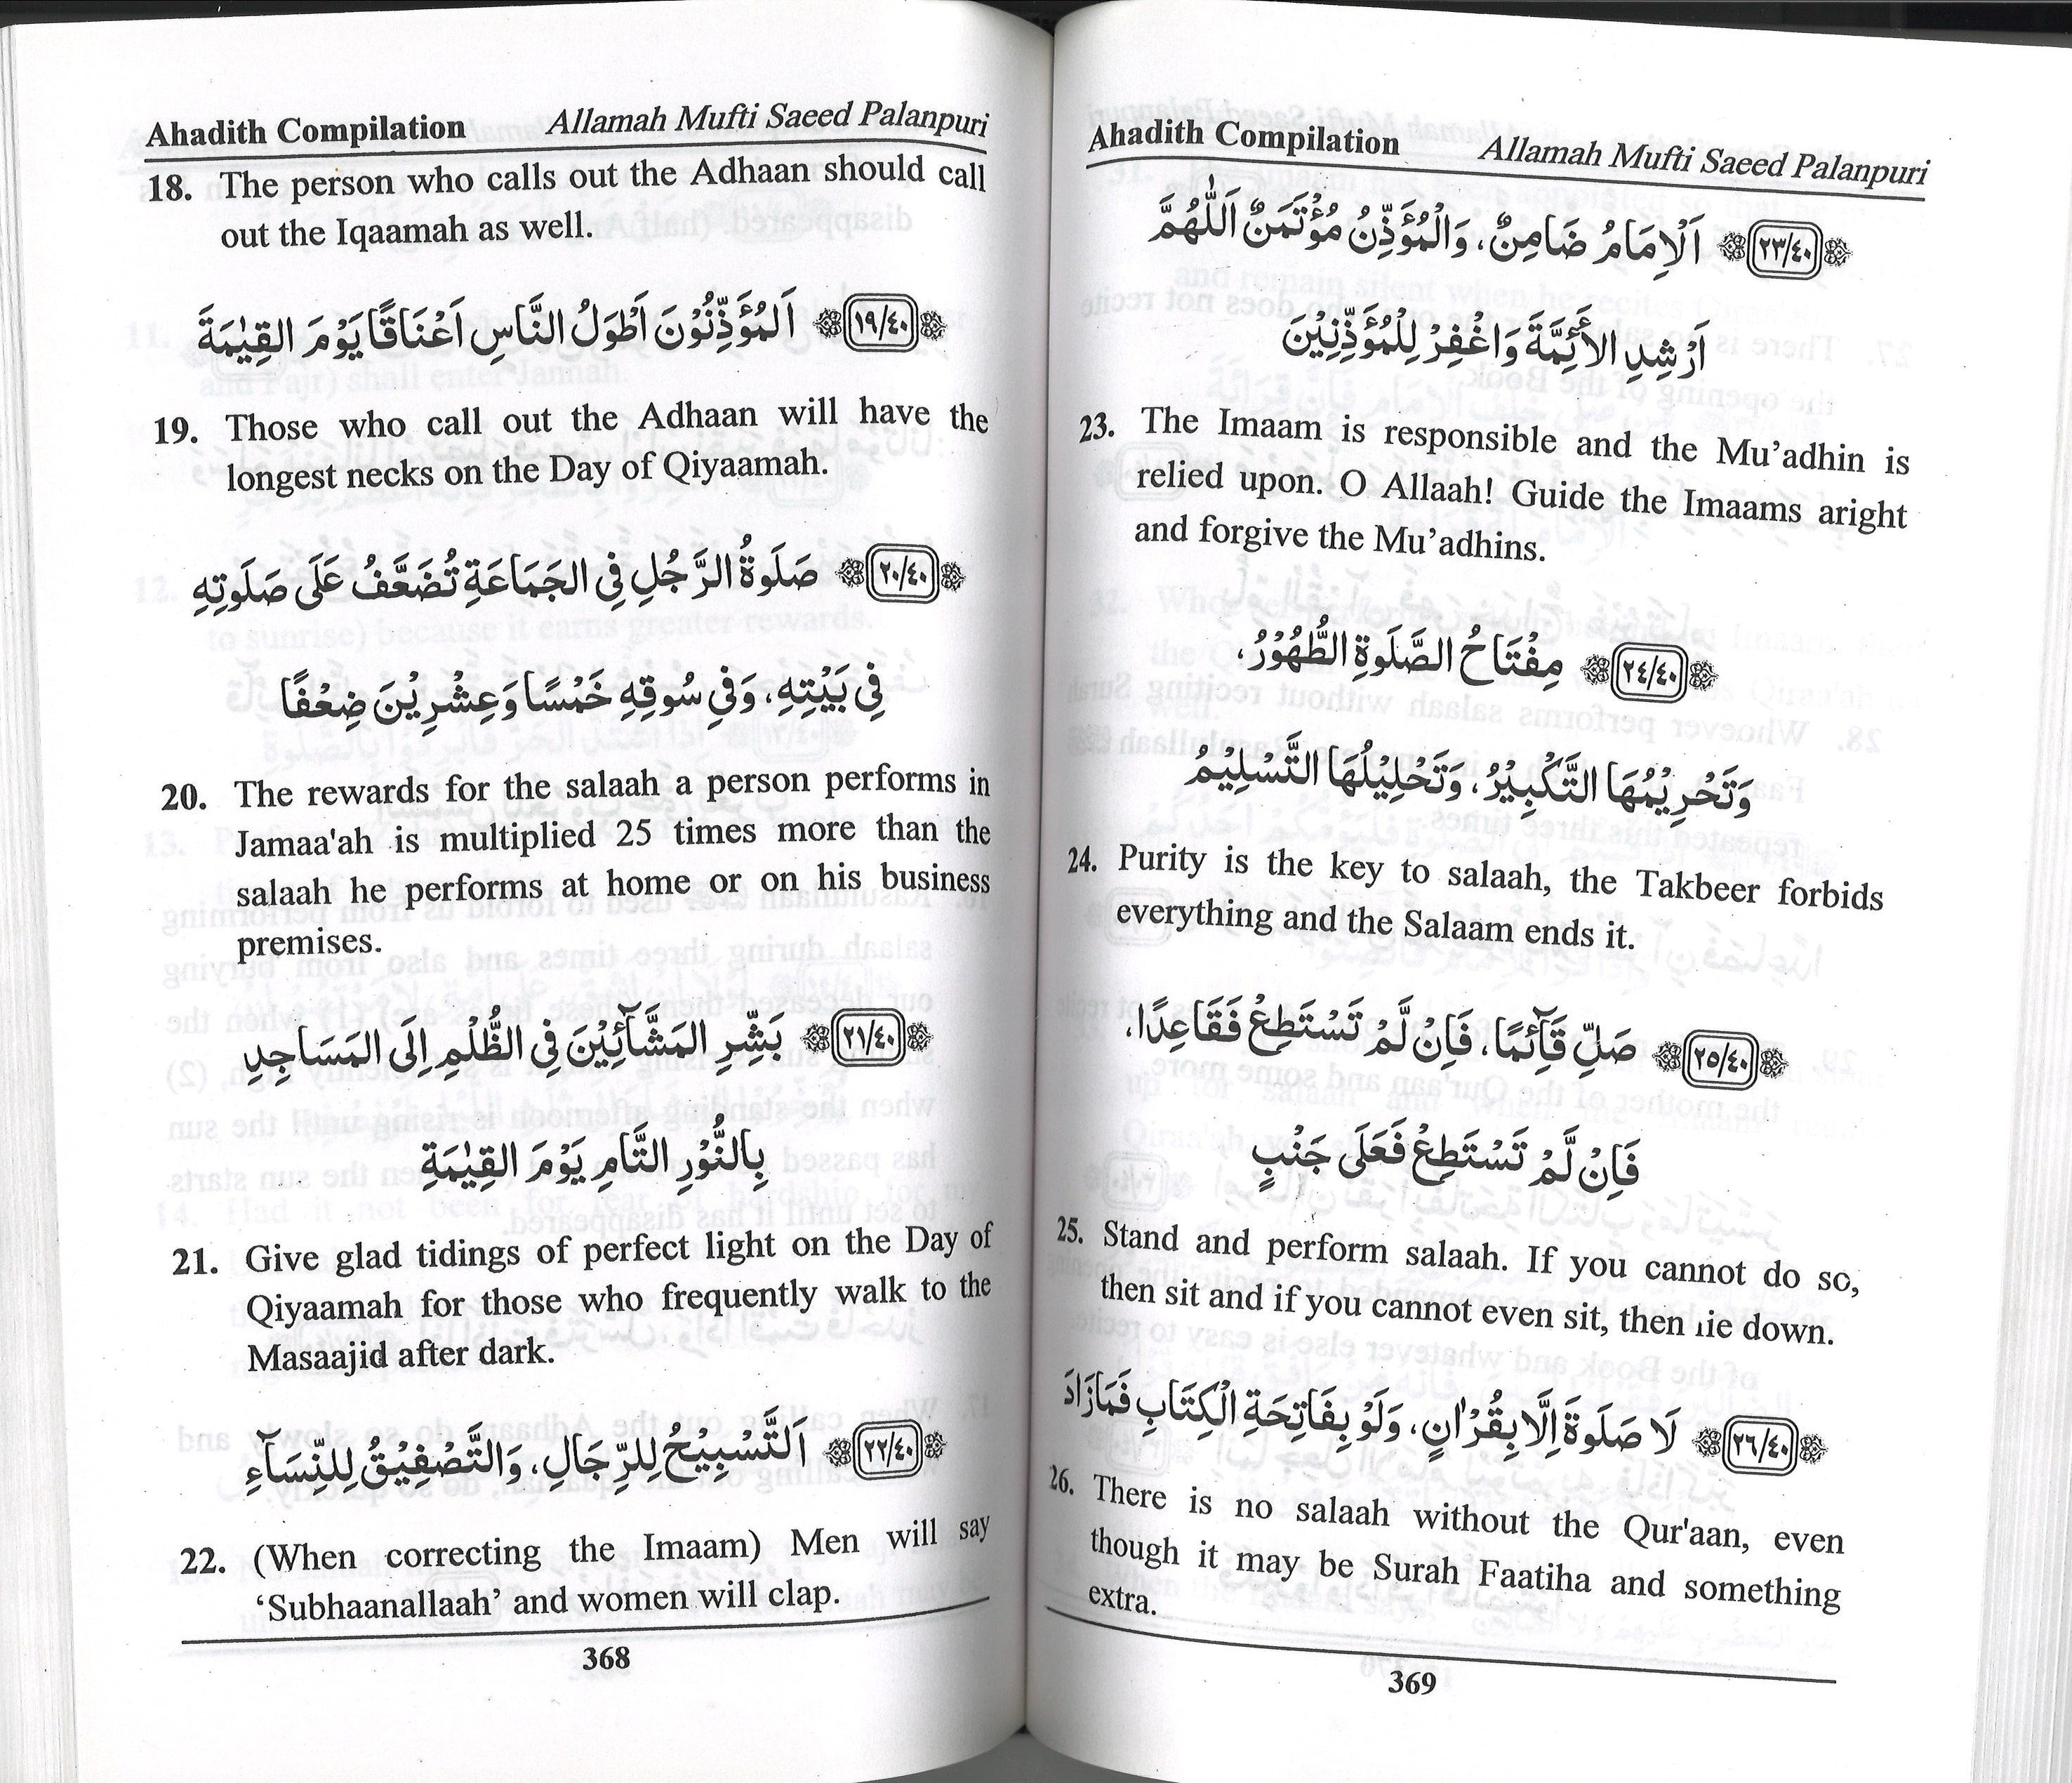 Ahadith Compilation Allamah Mufti Saeed Palanpuri
18. The person who calls out the Adhaan should call
out the Iqaamah as well.
﴿١٩/٤٠﴾ اَلْمُؤَذِّنُوْنَ اَطْوَلُ النَّاسِ اَعْنَاقًا يَوْمَ القِيٰمَةَ
19. Those who call out the Adhaan will have the
longest necks on the Day of Qiyaamah.
﴿٢٠/٤٠﴾ صَلَوةُ الرَّجُلِ فِي الجَمَاعَةِ تُضَعَّفُ عَلَى صَلَوتِهِ
فِي بَيْتِهِ، وَفِي سُوقِهِ خَمْسًا وَعِشْرِيْنَ ضِعْفًا
20. The rewards for the salaah a person performs in
Jamaa'ah is multiplied 25 times more than the
salaah he performs at home or on his business
premises.
﴿٢١/٤٠﴾ بَشِّرِ المَشَّآئِيْنَ فِي الظُّلَمِ اِلَى المَسَاجِدِ
بِالنُّوْرِ التَّامِ يَوْمَ القِيٰمَةِ
21. Give glad tidings of perfect light on the Day of
Qiyaamah for those who frequently walk to the
Masaajid after dark.
﴿٢٢/٤٠﴾ اَلتَّسْبِيْحُ لِلرِّجَالِ، وَالتَّصْفِيْقُ لِلنِّسَآءِ
22. (When correcting the Imaam) Men will say
‘Subhaanallaah’ and women will clap.
368
Ahadith Compilation Allamah Mufti Saeed Palanpuri
﴿٢٣/٤٠﴾ اَلْاِمَامُ ضَامِنٌ، وَالْمُؤَذِّنُ مُؤْتَمَنٌ اَللّٰهُمَّ
اَرْشِدِ الأَئِمَّةَ وَاغْفِرْ لِلْمُؤَذِّنِيْنَ
23. The Imaam is responsible and the Mu’adhin is
relied upon. O Allaah! Guide the Imaams aright
and forgive the Mu’adhins.
﴿٢٤/٤٠﴾ مِفْتَاحُ الصَّلَوةِ الطُّهُوْرُ،
وَتَحْرِيْمُهَا التَّكْبِيْرُ، وَتَحْلِيْلُهَا التَّسْلِيْمُ
24. Purity is the key to salaah, the Takbeer forbids
everything and the Salaam ends it.
﴿٢٥/٤٠﴾ صَلِّ قَآئِمًا، فَاِنْ لَّمْ تَسْتَطِعْ فَقَاعِدًا،
فَاِنْ لَّمْ تَسْتَطِعْ فَعَلَى جَنْبٍ
25. Stand and perform salaah. If you cannot do so,
then sit and if you cannot even sit, then lie down.
﴿٢٦/٤٠﴾ لَا صَلَوةَ اِلَّا بِقُرْاٰنٍ، وَلَوْ بِفَاتِحَةِ الْكِتَابِ فَمَازَادَ
26. There is no salaah without the Qur'aan, even
though it may be Surah Faatiha and something
extra.
369